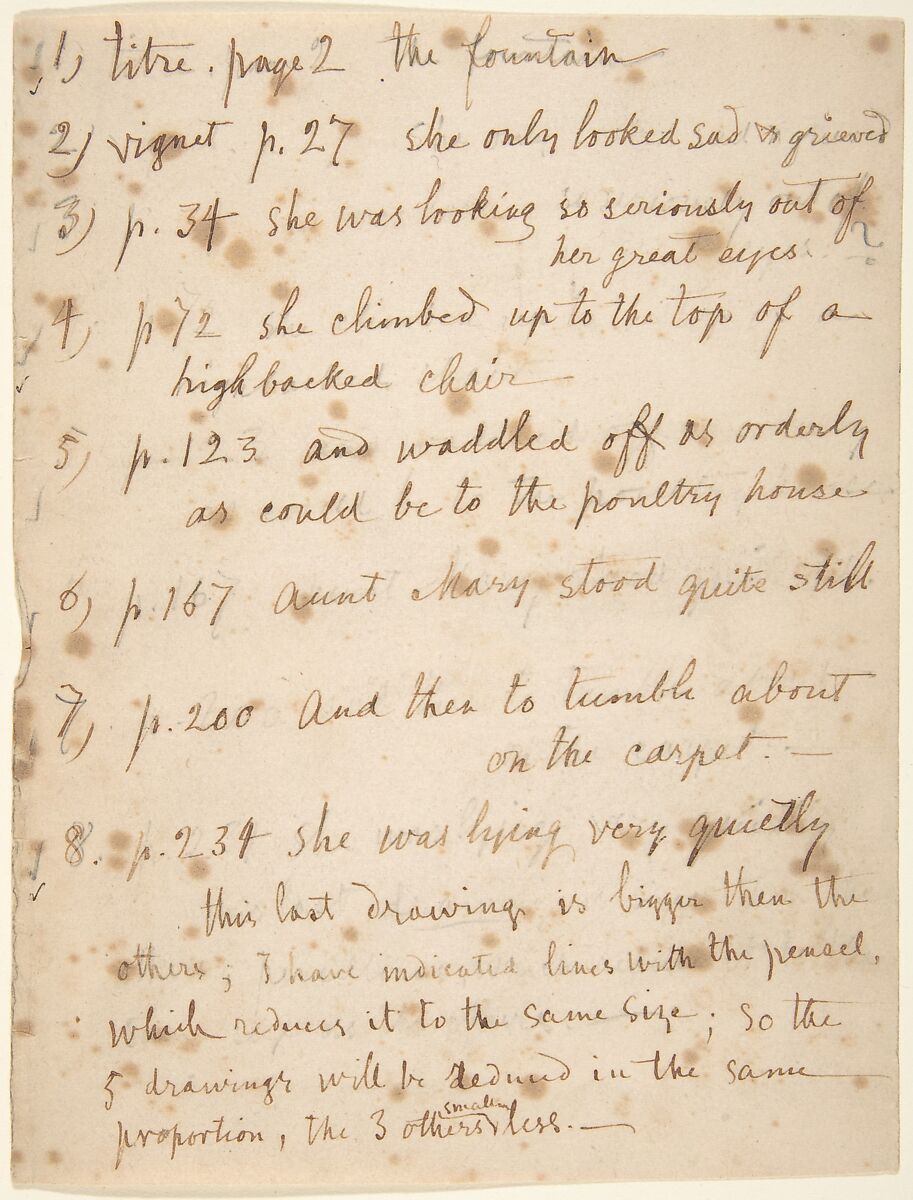 1) titre. page 2 the fountain
2) vignet p. 27 she only looked sad & grieved
3) p. 34 she was looking so seriously out of
her great eyes ?
4) p 72 she climbed up to the top of a
highbacked chair
5) p. 123 and waddled off as orderly
as could be to the poultry house
6) p 167 Aunt Mary stood quite still
7) p. 200 And then to tumble about
on the carpet. —
8. p. 234 she was lying very quietly
this last drawing is bigger then the
others; I have indicated lines with the pencel,
which reduces it to the same size; so the
5 drawings will be reduced in the same
smaller
proportion, the 3 others less. —